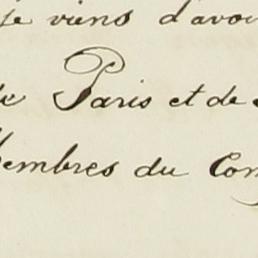 je viens d'avoi
de Paris et de
embres du Com